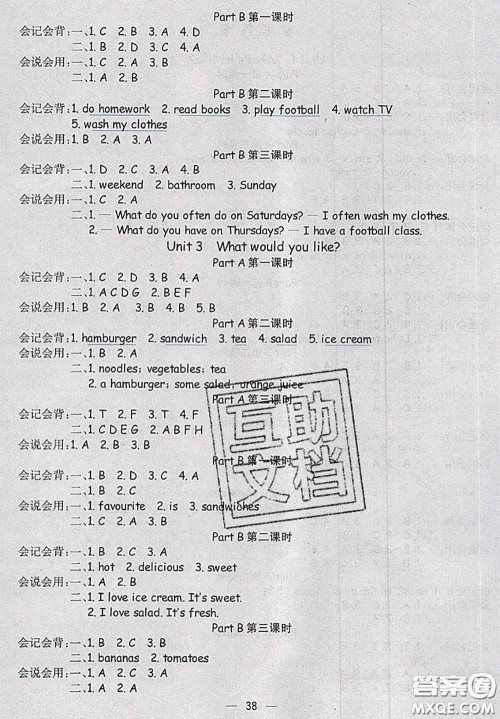 Part B 第一课时
会记会背:一、1. C 2. B 3. A 4. D
二、1. C 2. B 3. D 4. A
会说会用:1. C 2. B 3. A
Part B 第二课时
会记会背:1. do homework 2. read books 3. play football 4. watch TV
5. wash my clothes
会说会用:1. B 2. A 3. A
Part B 第三课时
会记会背:一、1. C 2. D 3. A 4. B
二、1. weekend 2. bathroom 3. Sunday
会说会用:一、1. C 2. D 3. A 4. B
二、1. — What do you often do on Saturdays? — I often wash my clothes.
2. — What do you have on Thursdays? — I have a football class.
Unit 3 What would you like?
Part A 第一课时
会记会背:一、1. C 2. B 3. B 4. A
二、1. A C D G 2. B E F
会说会用:1. A 2. A 3. B 4. B 5. B
Part A 第二课时
会记会背:1. hamburger 2. sandwich 3. tea 4. salad 5. ice cream
会说会用:一、1. B 2. A
二、1. noodles; vegetables; tea
2. a hamburger; some salad; orange juice
Part A 第三课时
会记会背:一、1. T 2. F 3. F 4. T
二、1. C D E G 2. A B F H
会说会用:1. A 2. B 3. B
Part B 第一课时
会记会背:一、1. B 2. D 3. C 4. A
二、1. B 2. B 3. A 4. A
会说会用:一、1. favourite 2. is 3. sandwiches
二、1. A 2. B 3. A
Part B 第二课时
会记会背:一、1. B 2. C 3. A
二、1. hot 2. delicious 3. sweet
会说会用:一、1. A 2. B
二、1. I love ice cream. It's sweet.
2. I love salad. It's fresh.
Part B 第三课时
会记会背:一、1. B 2. C 3. B 4. A
二、1. bananas 2. tomatoes
会说会用:一、1. A 2. C 3. B
二、1. A 2. A
38
互助
文档
答案圈
MXQE.COM